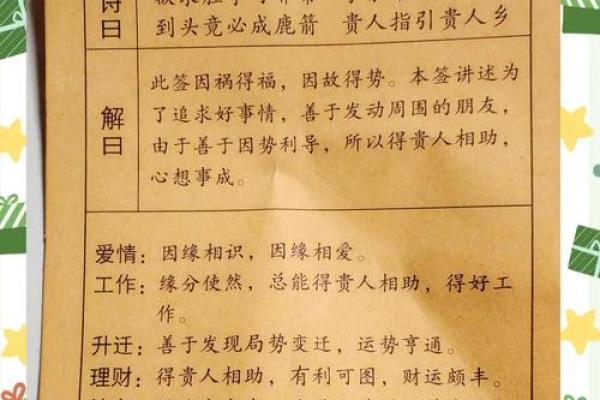 诗曰
到头竟必成鹿箭　贵人指引贵人乡
解曰
此签因祸得福，因故得势。本签讲述为
了追求好事情，善于发动周围的朋友，
由于善于因势利导，所以得贵人相助，
心想事成。
爱情：因缘相识，因缘相爱。
工作：缘分使然，总能得贵人相助，得好工
作。
升迁：善于发现局势变迁，运势亨通。
理财：得贵人相助，有利可图，财运颇丰。